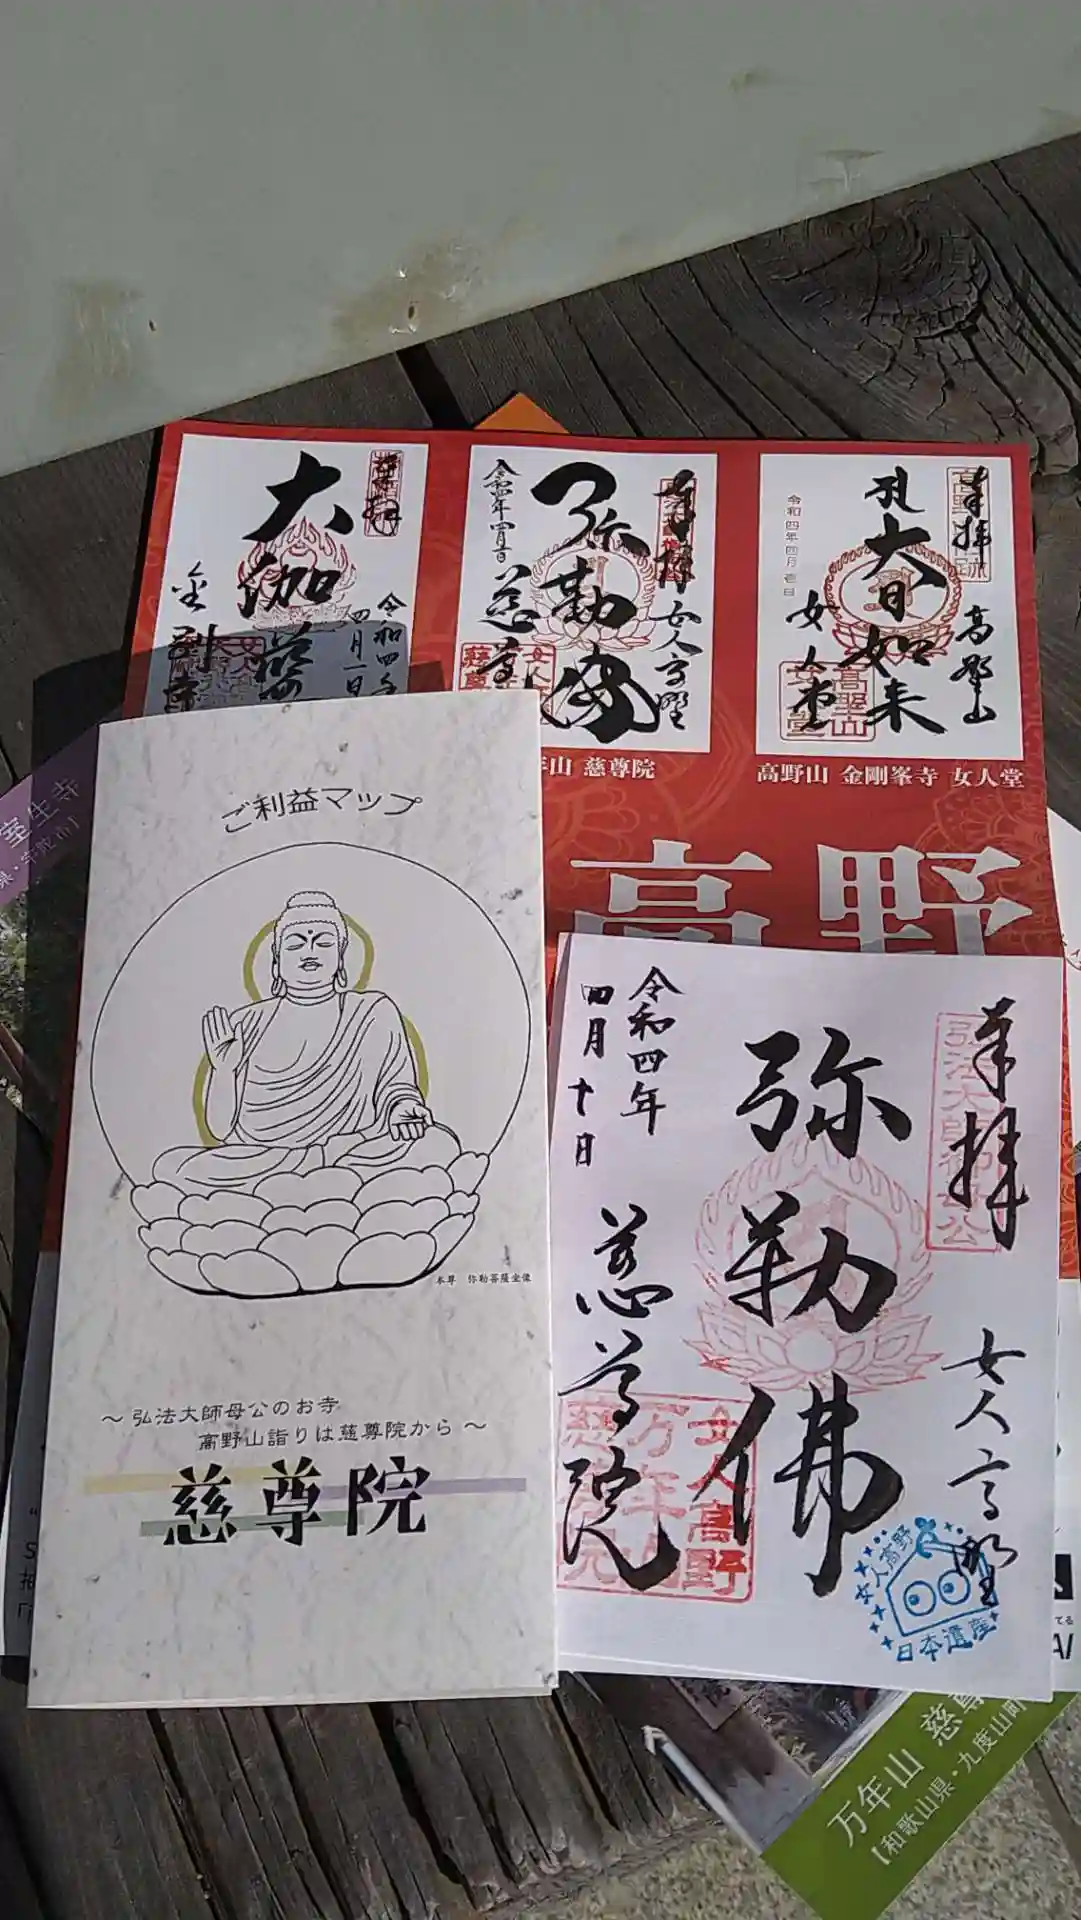 大伽藍
令和四年
四月一日
奉拝
女人高野
弥勒
慈尊
令和四年四月一日
奉拝
高野山
大日如来
女人堂
令和四年四月壱日
年山 慈尊院
高野山 金剛峯寺 女人堂
高野
室生寺
ご利益マップ
本尊 弥勒菩薩坐像
～ 弘法大師母公のお寺
高野山詣りは慈尊院から ～
慈尊院
奉拝
弘法大師御母公
女人高野
弥勒佛
令和四年
四月十日
慈尊院
女人高野
万年山
慈尊院
女人高野
日本遺産
万年山 慈尊
【和歌山県・九度山町